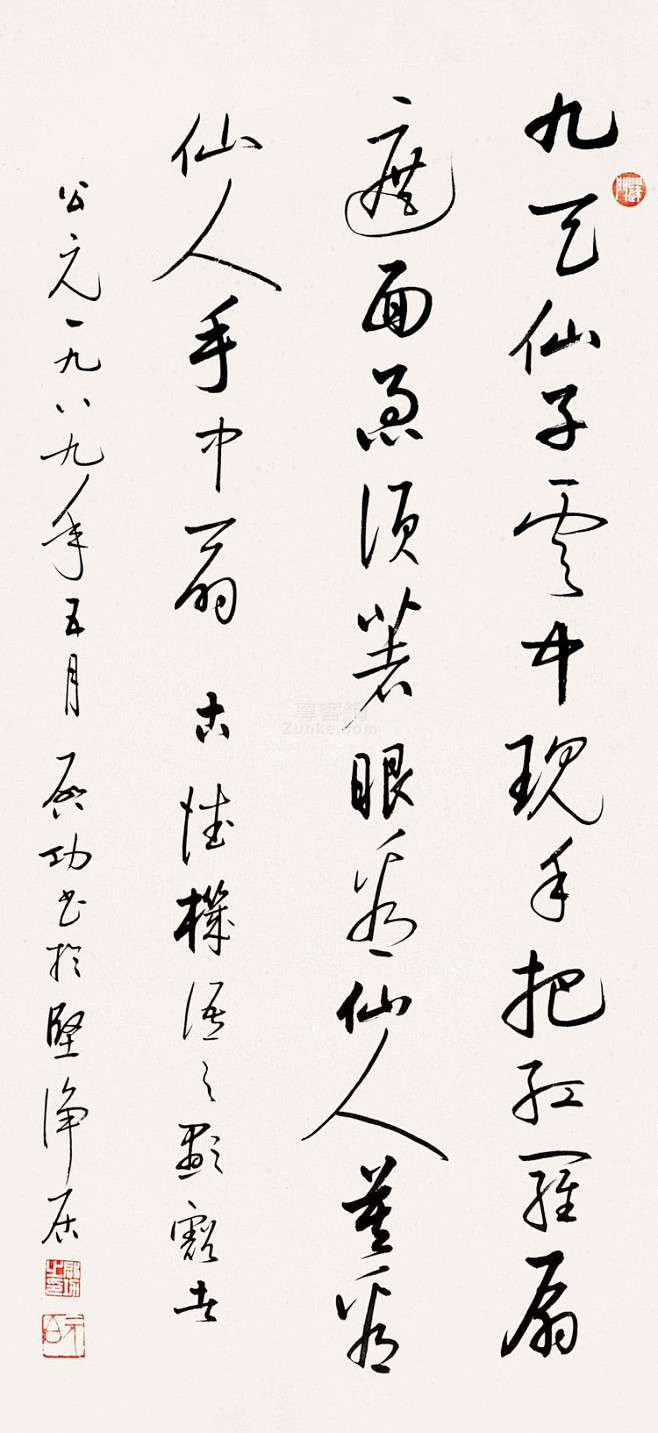 九天仙子云中现手把红罗扇
遮面急须著眼看仙人莫看
仙人手中扇 古德机语之显豁者
公元一九八九年五月 启功书於坚净居
尊客網
Zunke.com